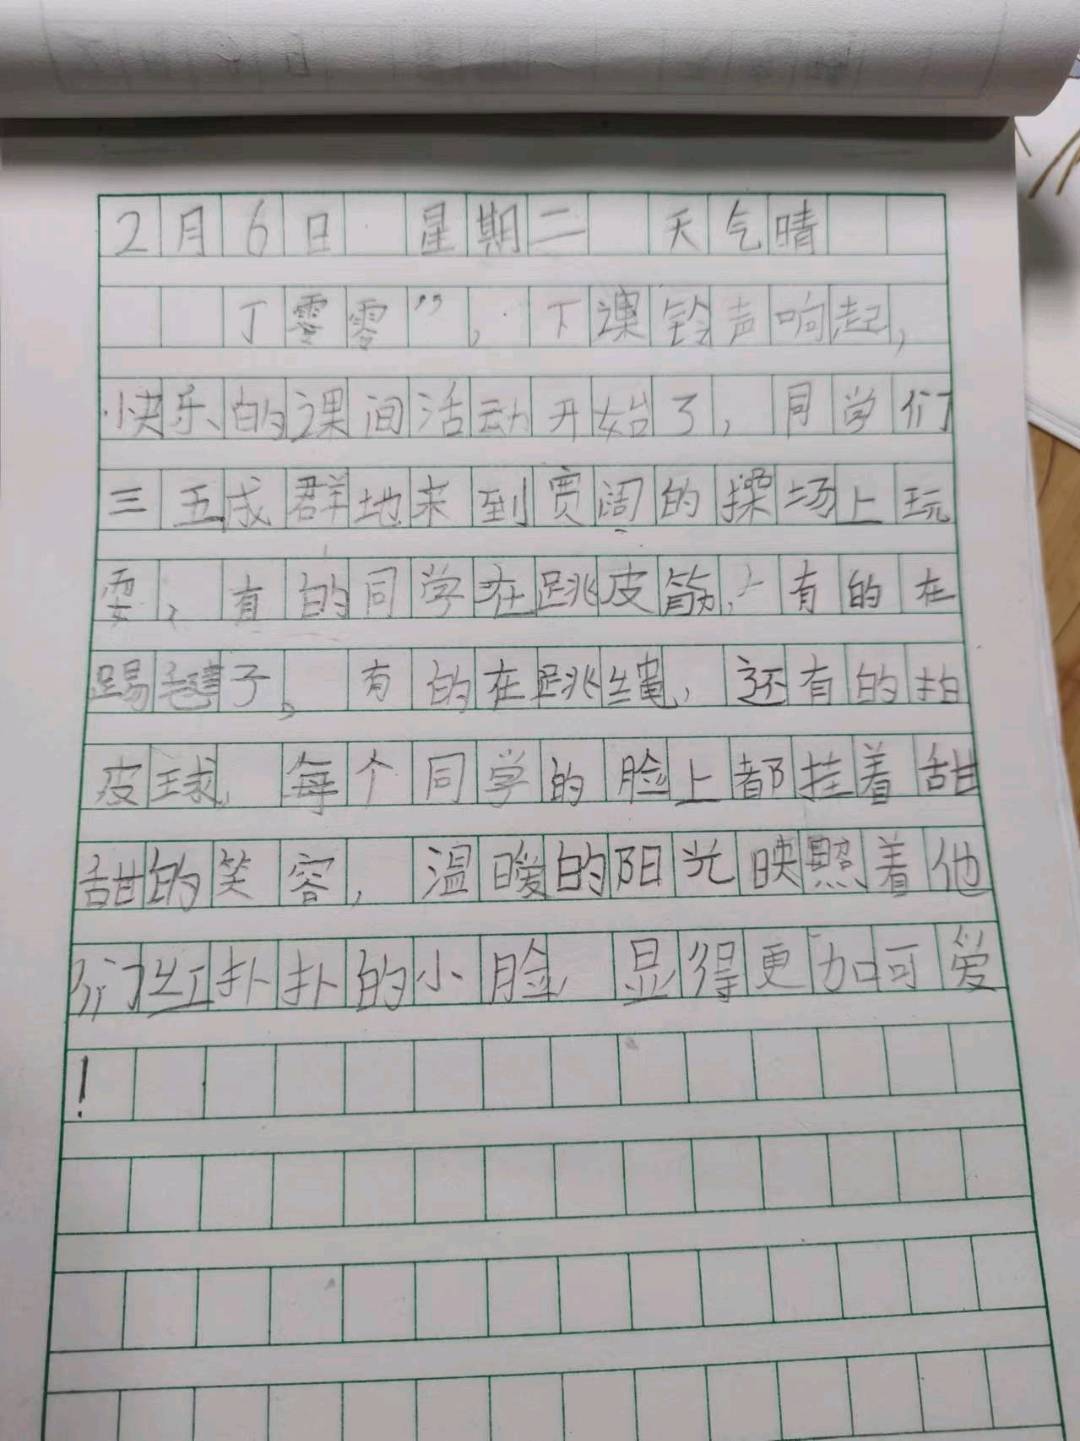 2月6日 星期二 天气晴
丁零零”,下课铃声响起,
快乐的课间活动开始了,同学们
三五成群地来到宽阔的操场上玩
耍,有的同学在跳皮筋,有的在
踢毽子。有的在跳绳,还有的拍
皮球,每个同学的脸上都挂着甜
甜的笑容,温暖的阳光映照着他
们红扑扑的小脸,显得更加可爱
!